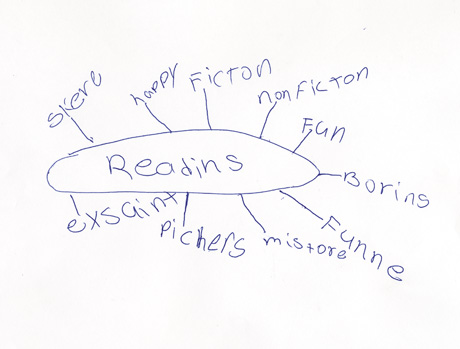 skere
happy
Ficton
nonFicton
Fun
Readins
Borins
exsaint
Pichers
mistore
Funne